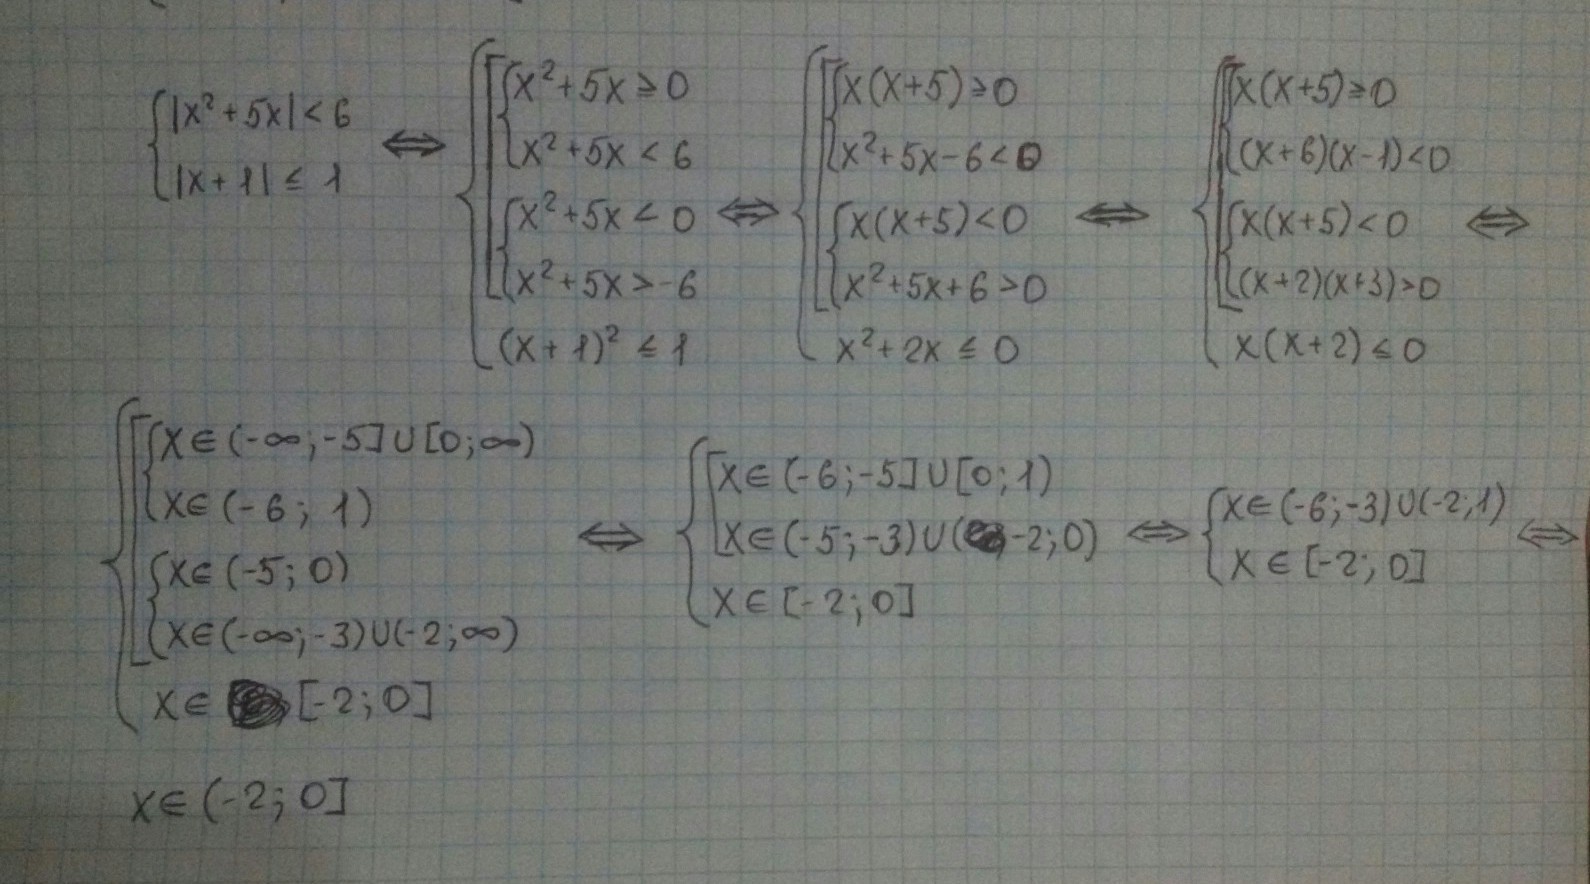 |x²+5x|<6
|x+1| ≤ 1
⇔
x²+5x ≥ 0
x²+5x < 6
x²+5x < 0
x²+5x > -6
(x+1)² ≤ 1
⇔
x(x+5) ≥ 0
x²+5x-6<0
x(x+5)<0
x²+5x+6>0
x²+2x ≤ 0
⇔
x(x+5) ≥ 0
(x+6)(x-1)<0
x(x+5)<0
(x+2)(x+3)>0
x(x+2) ≤ 0
⇔
x∈(-∞;-5]∪[0;∞)
x∈(-6; 1)
x∈(-5; 0)
x∈(-∞;-3)∪(-2;∞)
x∈ [-2; 0]
⇔
x∈(-6;-5]∪[0;1)
x∈(-5;-3)∪( -2;0)
x∈[-2;0]
⇔
x∈(-6;-3)∪(-2;1)
x∈[-2; 0]
⇔
x∈(-2; 0]